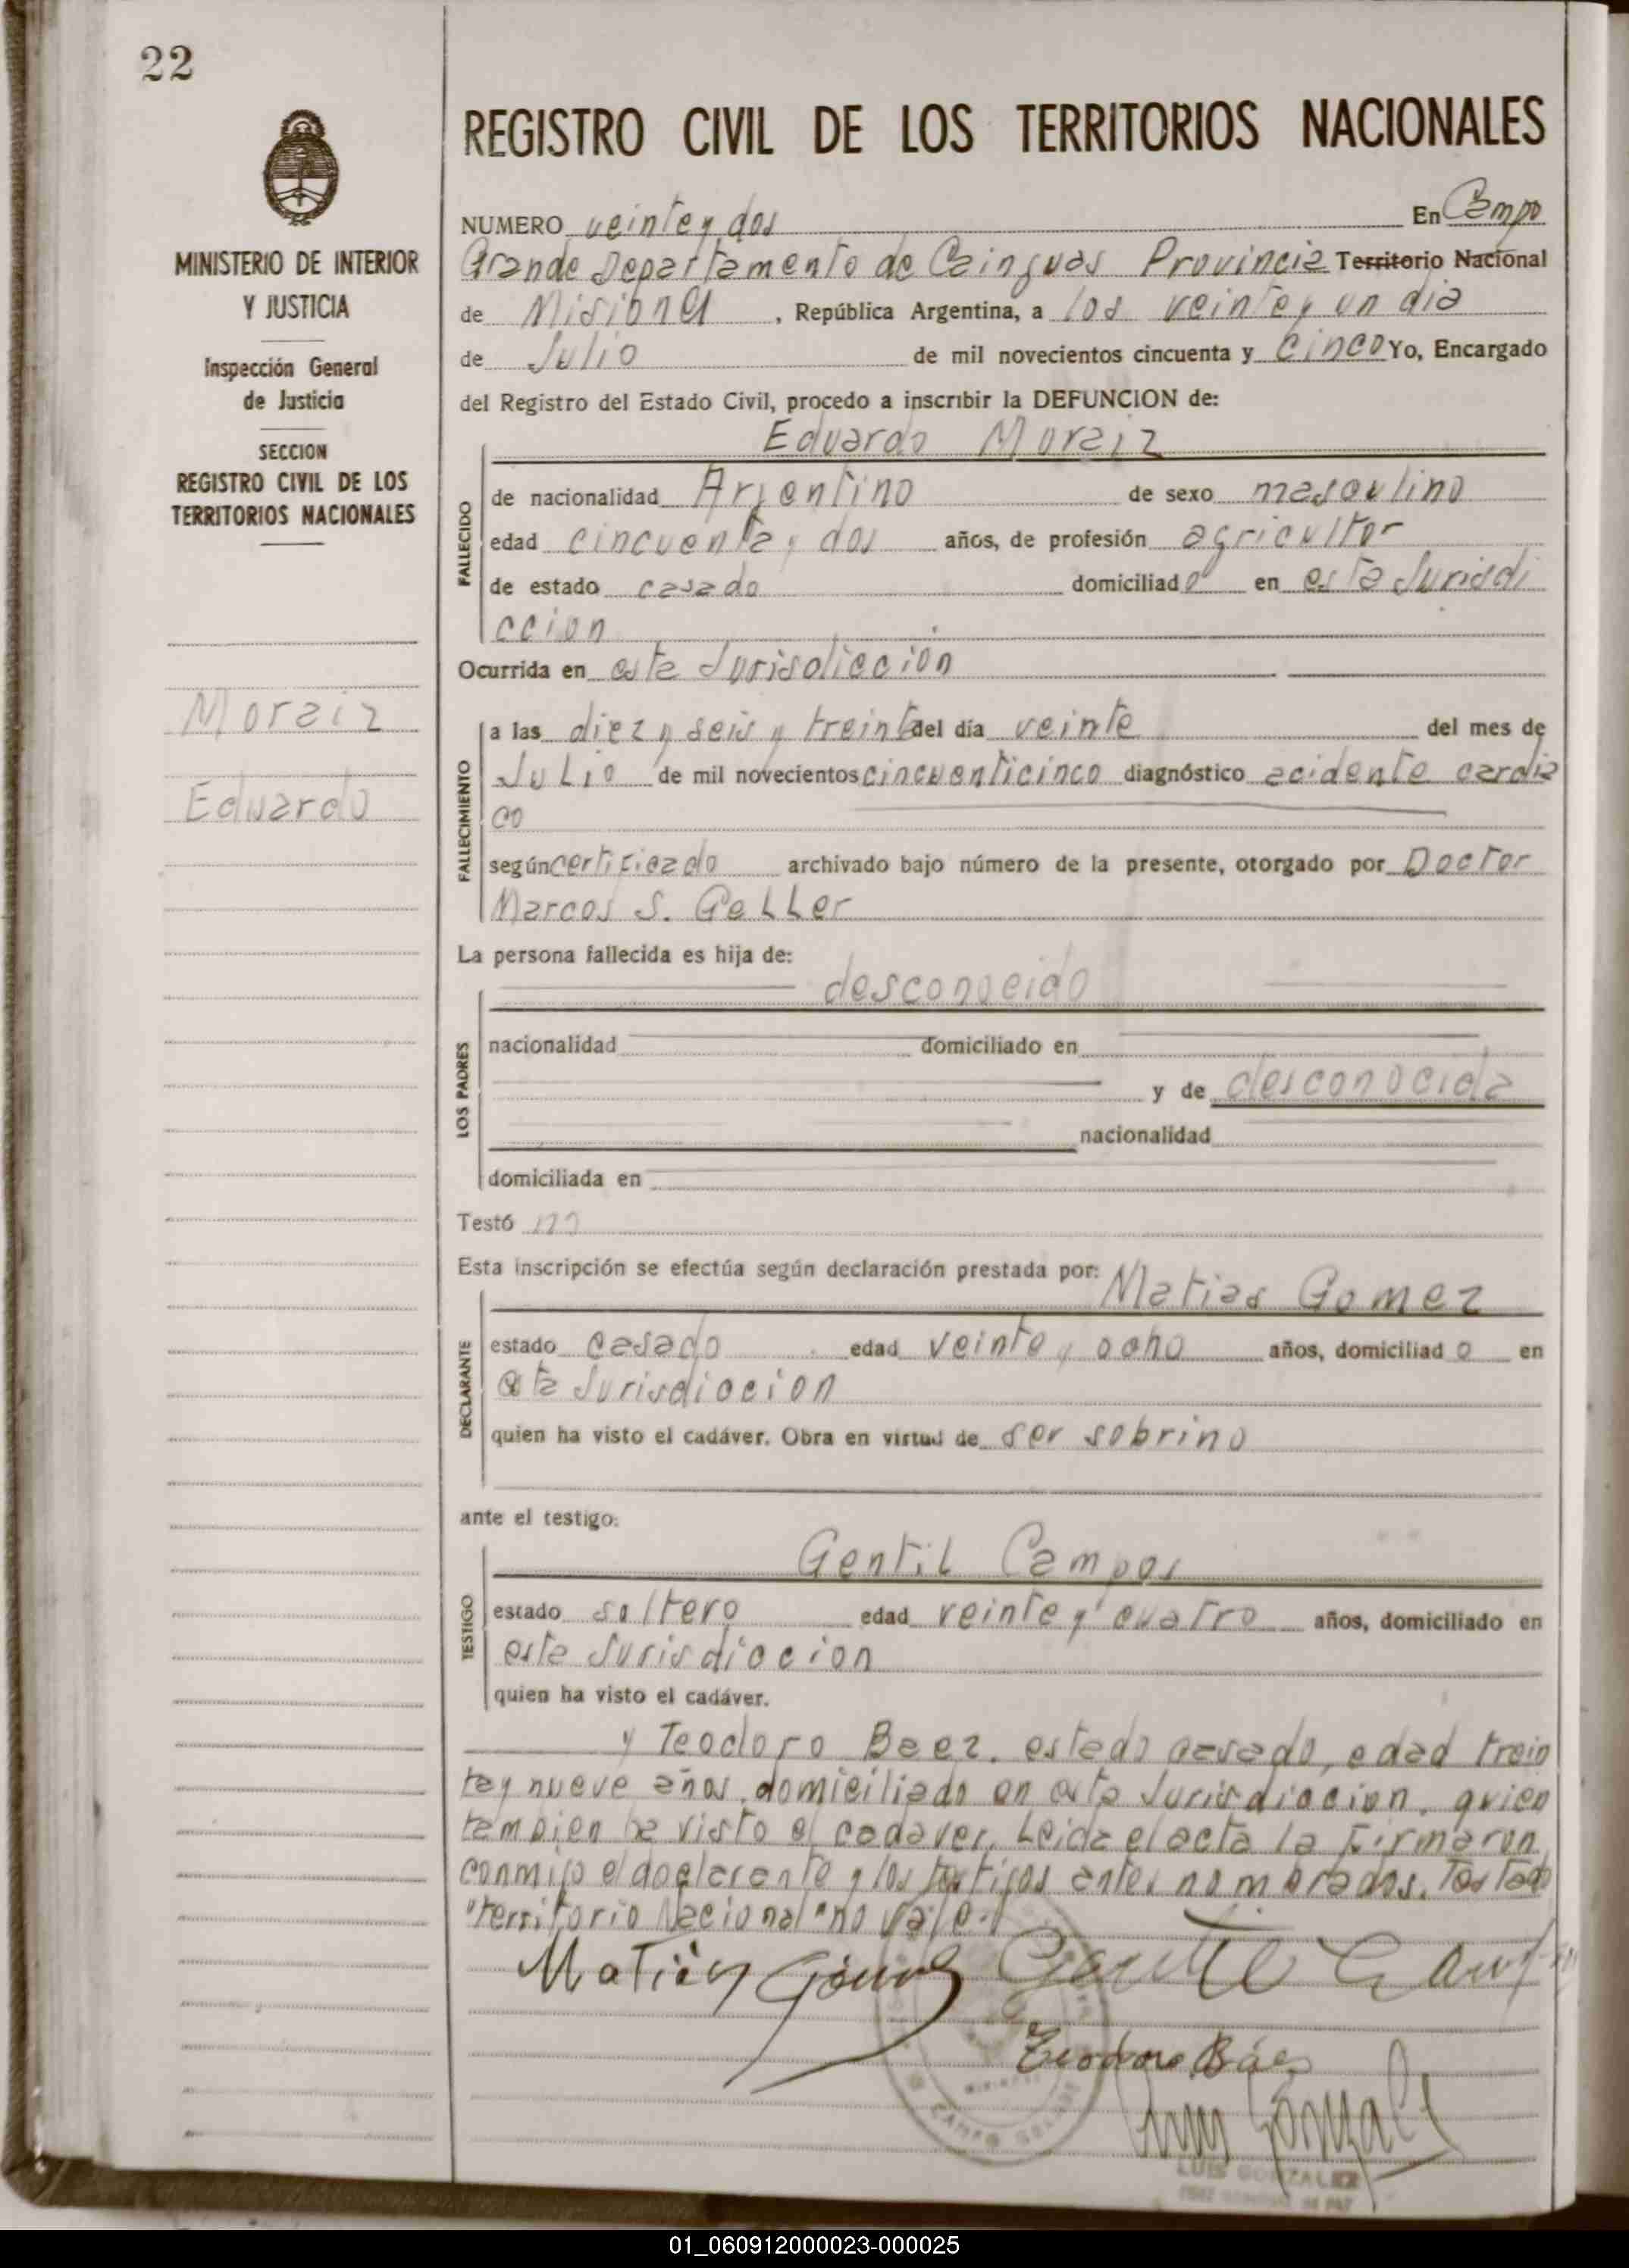 22
MINISTERIO DE INTERIOR
Y JUSTICIA
Inspección General
de Justicia
SECCION
REGISTRO CIVIL DE LOS
TERRITORIOS NACIONALES
Moraiz
Eduardo
REGISTRO CIVIL DE LOS TERRITORIOS NACIONALES
NUMERO veinte y dos En Campo
Grande Departamento de Cainguas Provincia Territorio Nacional
de Misiones, República Argentina, a los veinte y un dia
de Julio de mil novecientos cincuenta y cinco Yo, Encargado
del Registro del Estado Civil, procedo a inscribir la DEFUNCION de:
Eduardo Moraiz
FALLECIDO
de nacionalidad Argentino de sexo masculino
edad cincuenta y dos años, de profesión agricultor
de estado casado domiciliado en esta Jurisdi
ccion
Ocurrida en esta Jurisdiccion
FALLECIMIENTO
a las diez y seis y treinta del día veinte del mes de
Julio de mil novecientos cincuenticinco diagnóstico acidente cardia
co
según certificado archivado bajo número de la presente, otorgado por Doctor
Marcos S. Geller
La persona fallecida es hija de:
desconocido
LOS PADRES
nacionalidad domiciliado en
y de desconocida
nacionalidad
domiciliada en
Testó
Esta inscripción se efectúa según declaración prestada por: Matias Gomez
DECLARANTE
estado casado edad veinte y ocho años, domiciliado en
esta Jurisdiccion
quien ha visto el cadáver. Obra en virtud de ser sobrino
ante el testigo:
Gentil Campos
TESTIGO
estado soltero edad veinte y cuatro años, domiciliado en
esta Jurisdiccion
quien ha visto el cadáver.
y Teodoro Baez, estado casado, edad trein
ta y nueve años, domiciliado en esta Jurisdiccion, quien
tambien ha visto el cadaver. Leida el acta la firmaron
conmigo el declarante y los testigos antes nombrados. Testado
"territorio Nacional" no vale.
Matias Gomez Gentil Camp
Teodoro Báez
Luis Gonzalez
CAMPO GRANDE
LUIS GONZALEZ
JUEZ DE PAZ
01_060912000023-000025